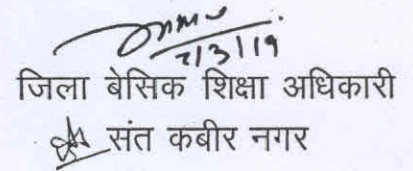 7/3/19
जिला बेसिक शिक्षा अधिकारी
संत कबीर नगर